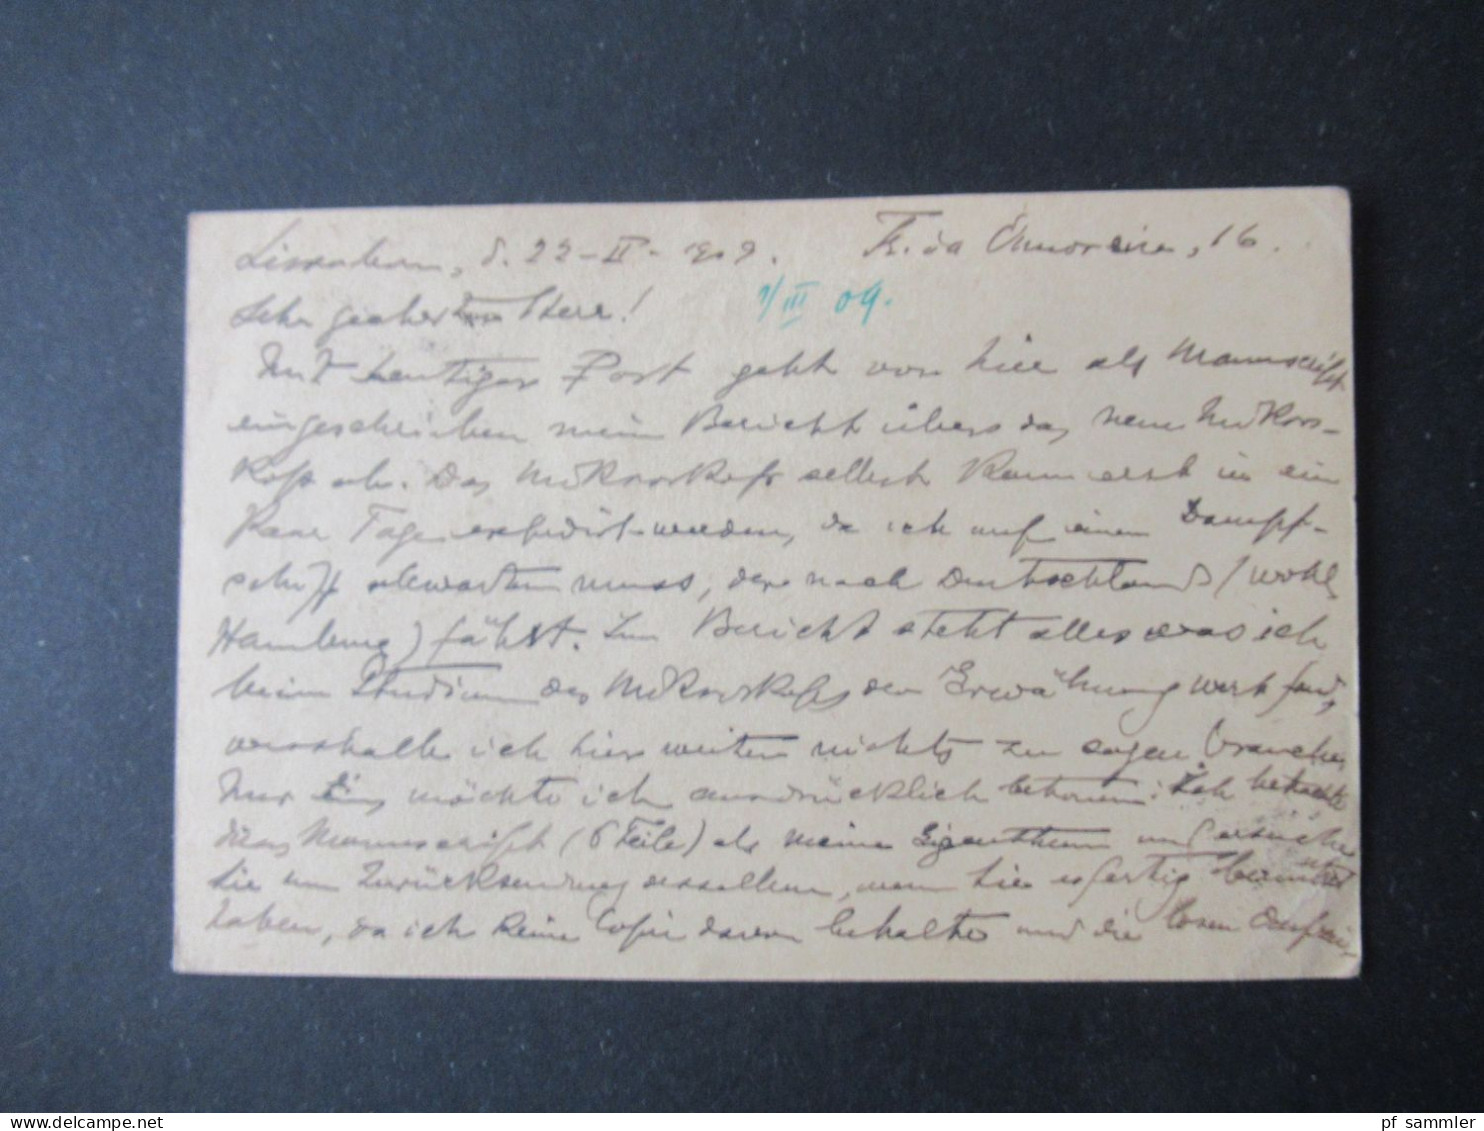 Lissabon, d. 22-II-1909. T. da Amoreira, 16.
Sehr geehrter Herr!
1/III 09.
Mit heutiger Post geht von hier als Manuscript
eingeschrieben mein Bericht über das neue Mikros-
kop ab. Das Mikroskop selbst kann erst in ein
Paar Tagen expedirt werden, da ich auf einen Dampf-
schiff abwarten muss, der nach Deutschland (wohl
Hamburg) fährt. Im Bericht steht alles was ich
beim Studium des Mikroskops der Erwähnung wert fand,
weshalb ich hier weiter nichts zu sagen brauche.
Nur möchte ich ausdrücklich betonen: Ich betrachte
das Manuscript (6 Teile) als meine Eigenthum und ersuche
Sie um Zurücksendung desselben, wenn Sie es fertig benutzt
haben, da ich keine Copie davon behalte und die losen
pf sammler